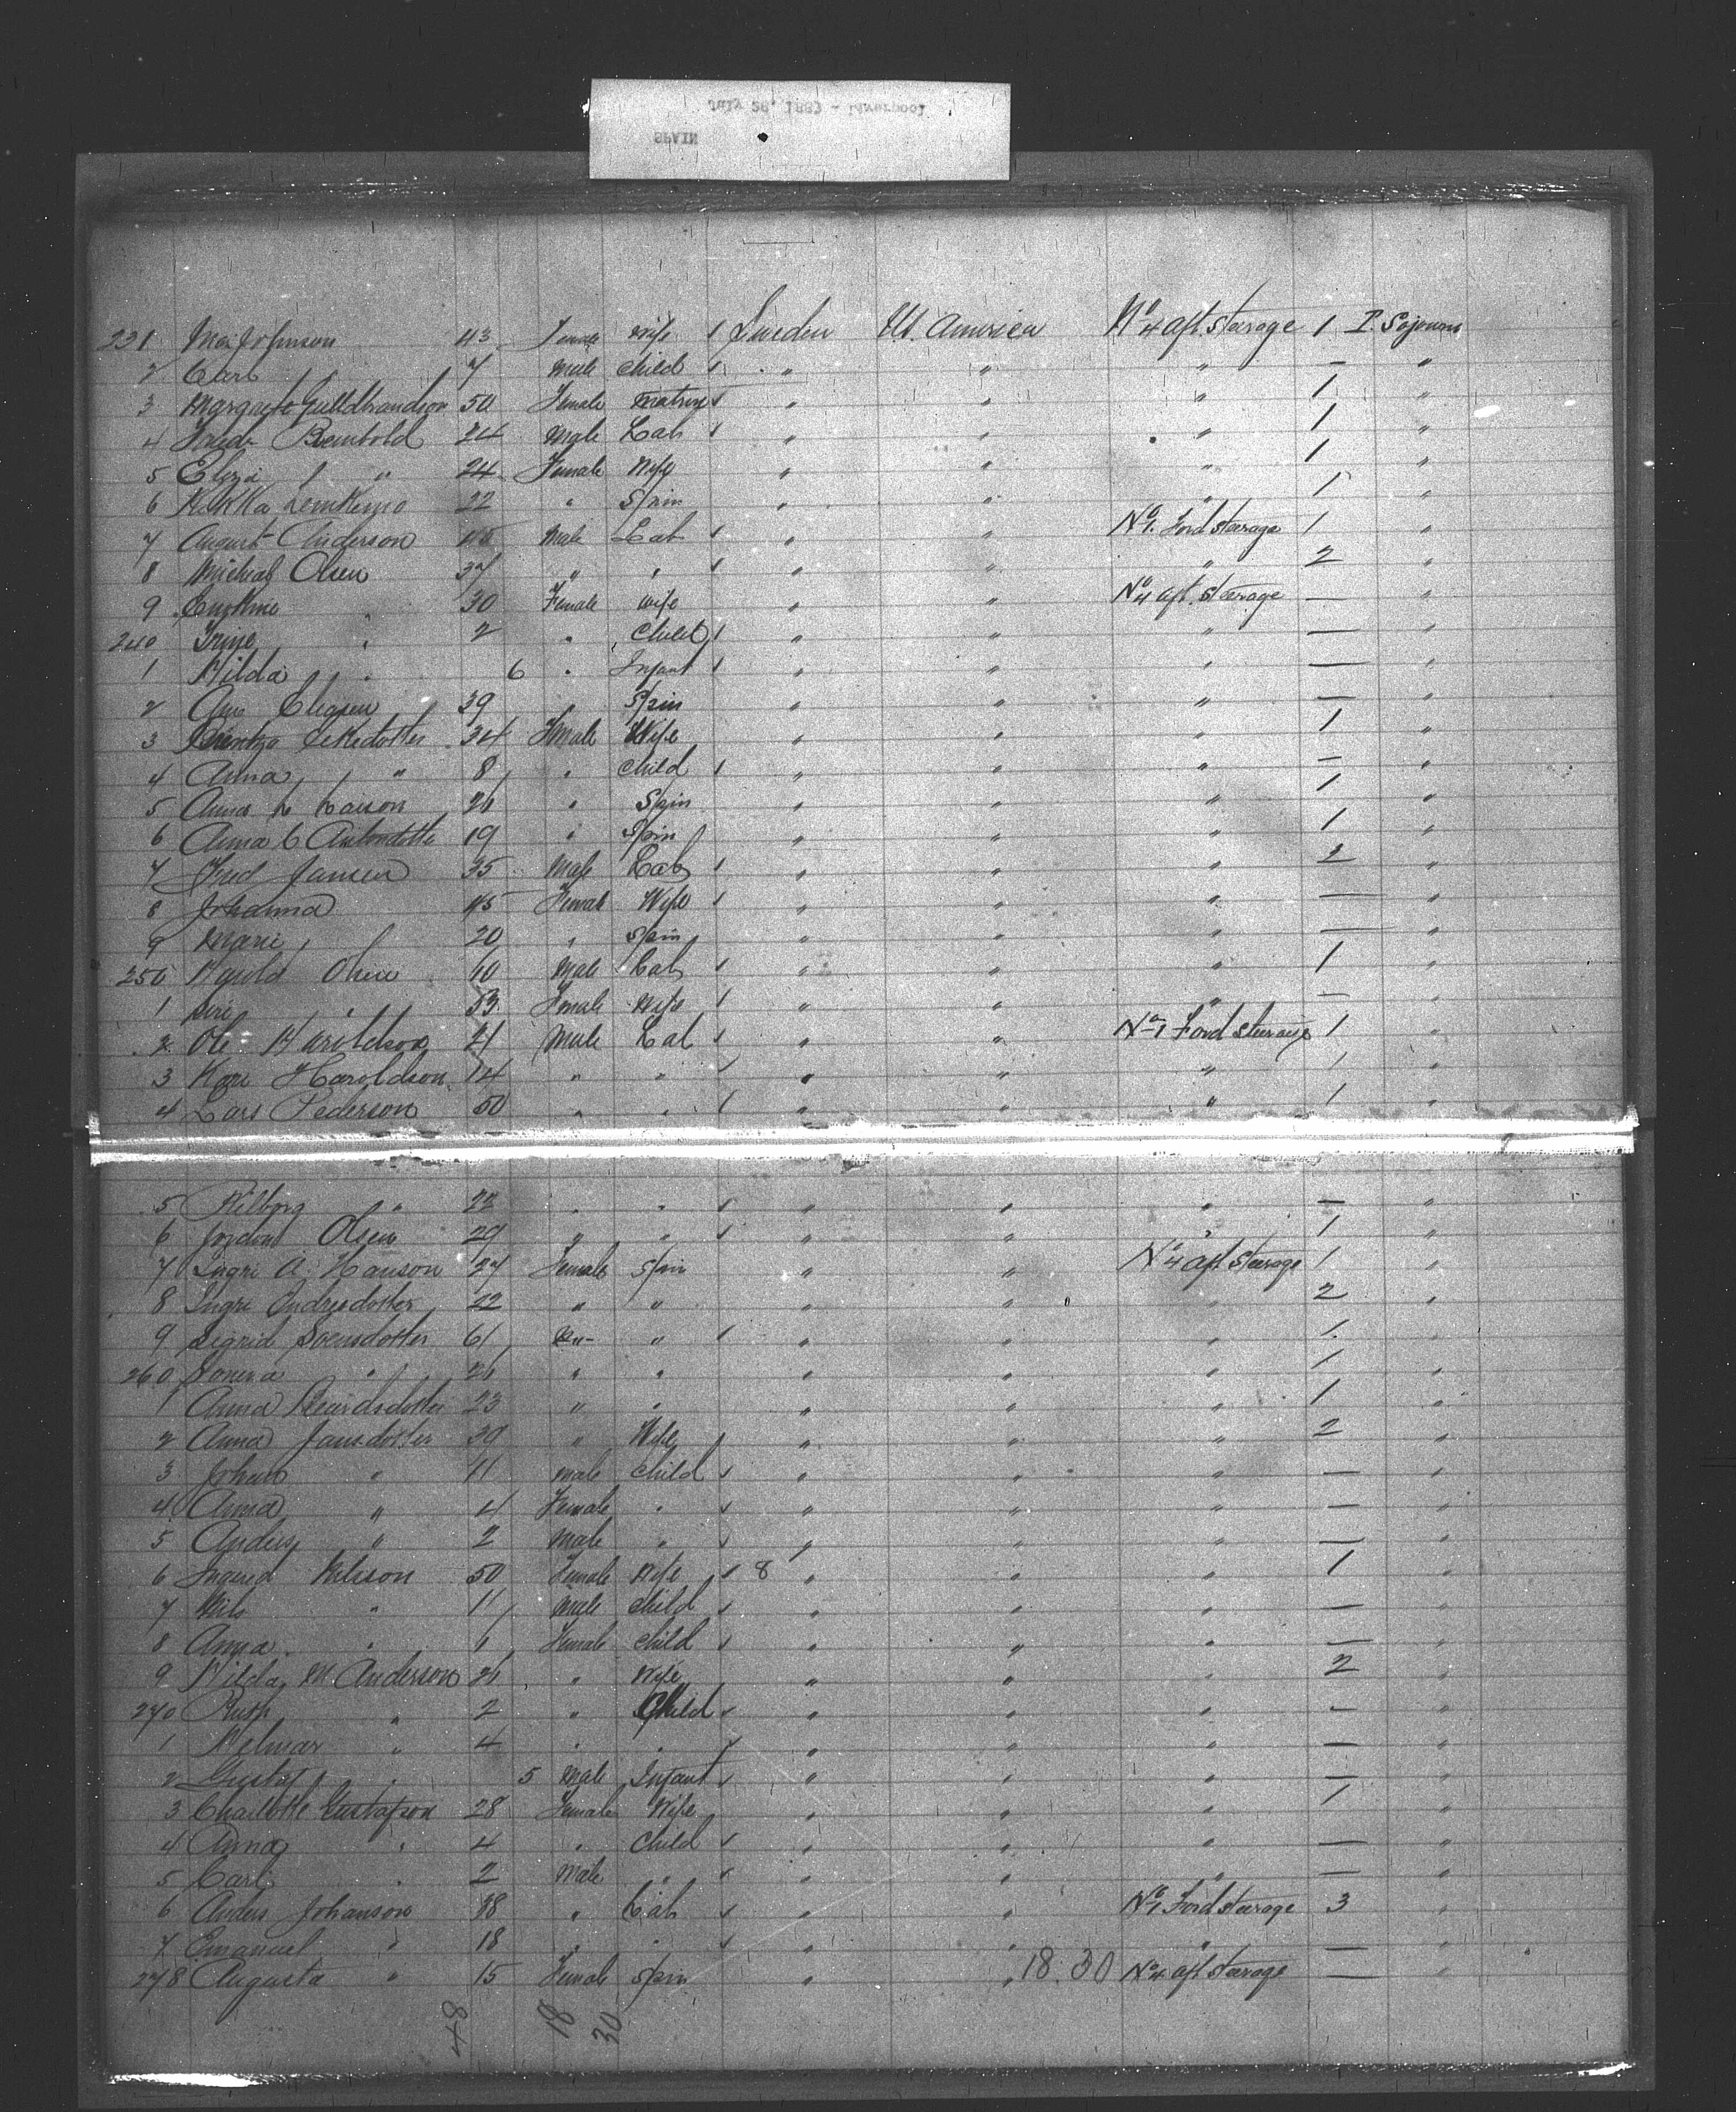 July 28, 1883 - Liverpool
SPAIN
231 Johnson 43 Female Wife / Sweden U. America No 4 aft. steerage 1 P. Sojourn
2 Carl " 7 Male Child / " " " — "
3 Margarete Gulldbrandson 50 Female Matron / " " " 1 "
4 Rembold 24 Male Lab / " " " 1 "
5 Eliza " 24 Female Wife " " " 1 "
6 22 " Spin " " " 1 "
7 August Anderson 45 Male Lab / " " No 1. Ford steerage 1 "
8 Micheal Olsen 37 " " / " " " 2 "
9 " 30 Female Wife " " No 4 aft. steerage — "
240 Trine " 2 " Child / " " " — "
1 Hilda " 6 " Infant / " " " — "
2 Ane 39 " Spin " " " — "
3 34 Female Wife " " " 1 "
4 Anna " 8 " Child / " " " — "
5 Anna L Larson 26 " Spin " " " 1 "
6 Anna C Antondotter 19 " Spin " " " 1 "
7 Fred Jansen 35 Male Lab / " " " 2 "
8 Johanna 45 Female Wife / " " " — "
9 Marie 20 " Spin " " " — "
250 Olsen 60 Male Lab / " " " 1 "
1 Siri " 53 Female Wife / " " " — "
2 Ole Haroldson 21 Male Lab / " " No 1 Ford steerage 1 "
3 Kari Haroldson 14 " " / " " " 1 "
4 Lars Pederson 50 " " / " " " 1 "
5 " 22 " " / " " " — "
6 Olsen 29 " " / " " " 1 "
7 Ingri A. Hanson 27 Female Spin " " No 4 aft Steerage 1 "
8 Ingri 22 " " " " " 2 "
9 Sigrid Svensdotter 61 " " / " " " 1 "
260 " 26 " " " " " 1 "
1 Anna 23 " " " " " 1 "
2 Anna Jansdotter 39 " Wife " " " 2 "
3 Johan " 11 Male Child / " " " — "
4 Anna " 4 Female " / " " " — "
5 Anders " 2 Male " / " " " — "
6 Ingerid Nilsson 50 Female Wife / 8 " " " 1 "
7 Nils " 11 Male Child / " " " — "
8 Anna " 6 Female Child / " " " — "
9 Hilda M. Anderson 26 " Wife " " " 2 "
270 Ruth " 2 " Child / " " " — "
1 Helmar " 4 " " / " " " — "
2 Gustaf " 5 Male Infant / " " " — "
3 Charlotte Gustafson 28 Female Wife " " " 1 "
4 Anna " 4 " Child / " " " — "
5 Carl " 2 Male " / " " " — "
6 Anders Johanson 48 " Lab / " " No 1 Ford steerage 3 "
7 Emanuel " 18 " " / " " " — "
278 Augusta " 15 Female Spin " " 18.30 No 4 aft steerage — "
48 18 30